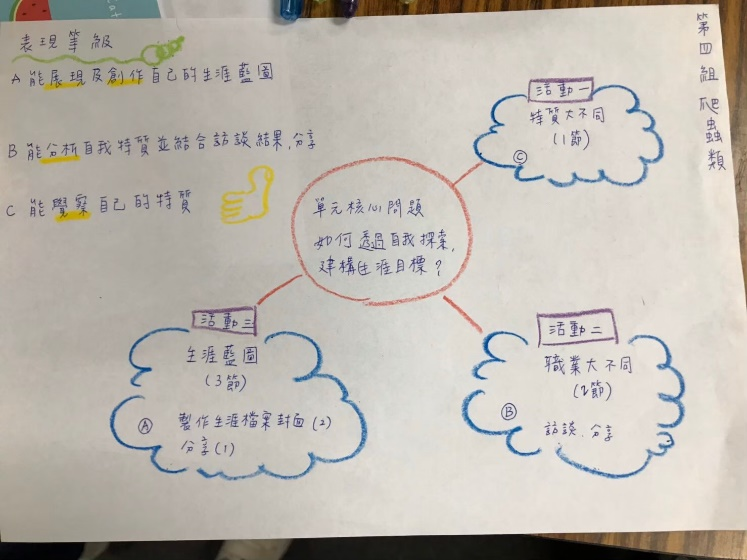 表現等級
A 能展現及創作自己的生涯藍圖
B 能分析自我特質並結合訪談結果,分享
C 能覺察自己的特質
第四組 爬蟲類
單元核心問題
如何透過自我探索,
建構生涯目標?
活動一
特質大不同
(1節)
Ⓒ
活動二
職業大不同
(2節)
Ⓑ
訪談、分享
活動三
生涯藍圖
(3節)
Ⓐ 製作生涯檔案封面(2)
分享(1)